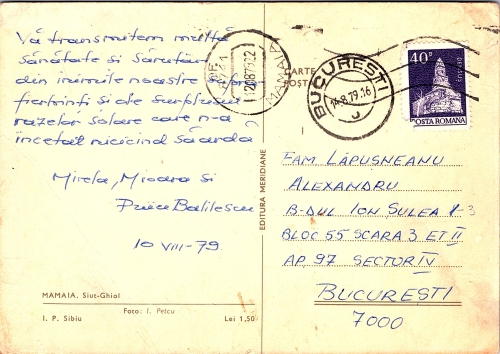 Vă transmitem multă
sănătate si sărutări
din inimile noastre
fierbinți si de surplusul
razelor solare care n-a
încetat nicicînd să ardă
Mirela, Mioara si
10 VIII-79.
MAMAIA. Siut-Ghiol
Foto: I. Petcu
I. P. Sibiu
Lei 1,50
EDITURA MERIDIANE
MAMAIA
12.08.79.22
CARTE
POȘT
BUCUREȘTI
14.8.79.16
40
POSTA ROMANA
FAM. LĂPUSNEANU
ALEXANDRU
B-DUL ION ȘULEA 1-3
BLOC 55 SCARA 3 ET II
AP. 97 SECTOR IV
BUCUREȘTI
7000